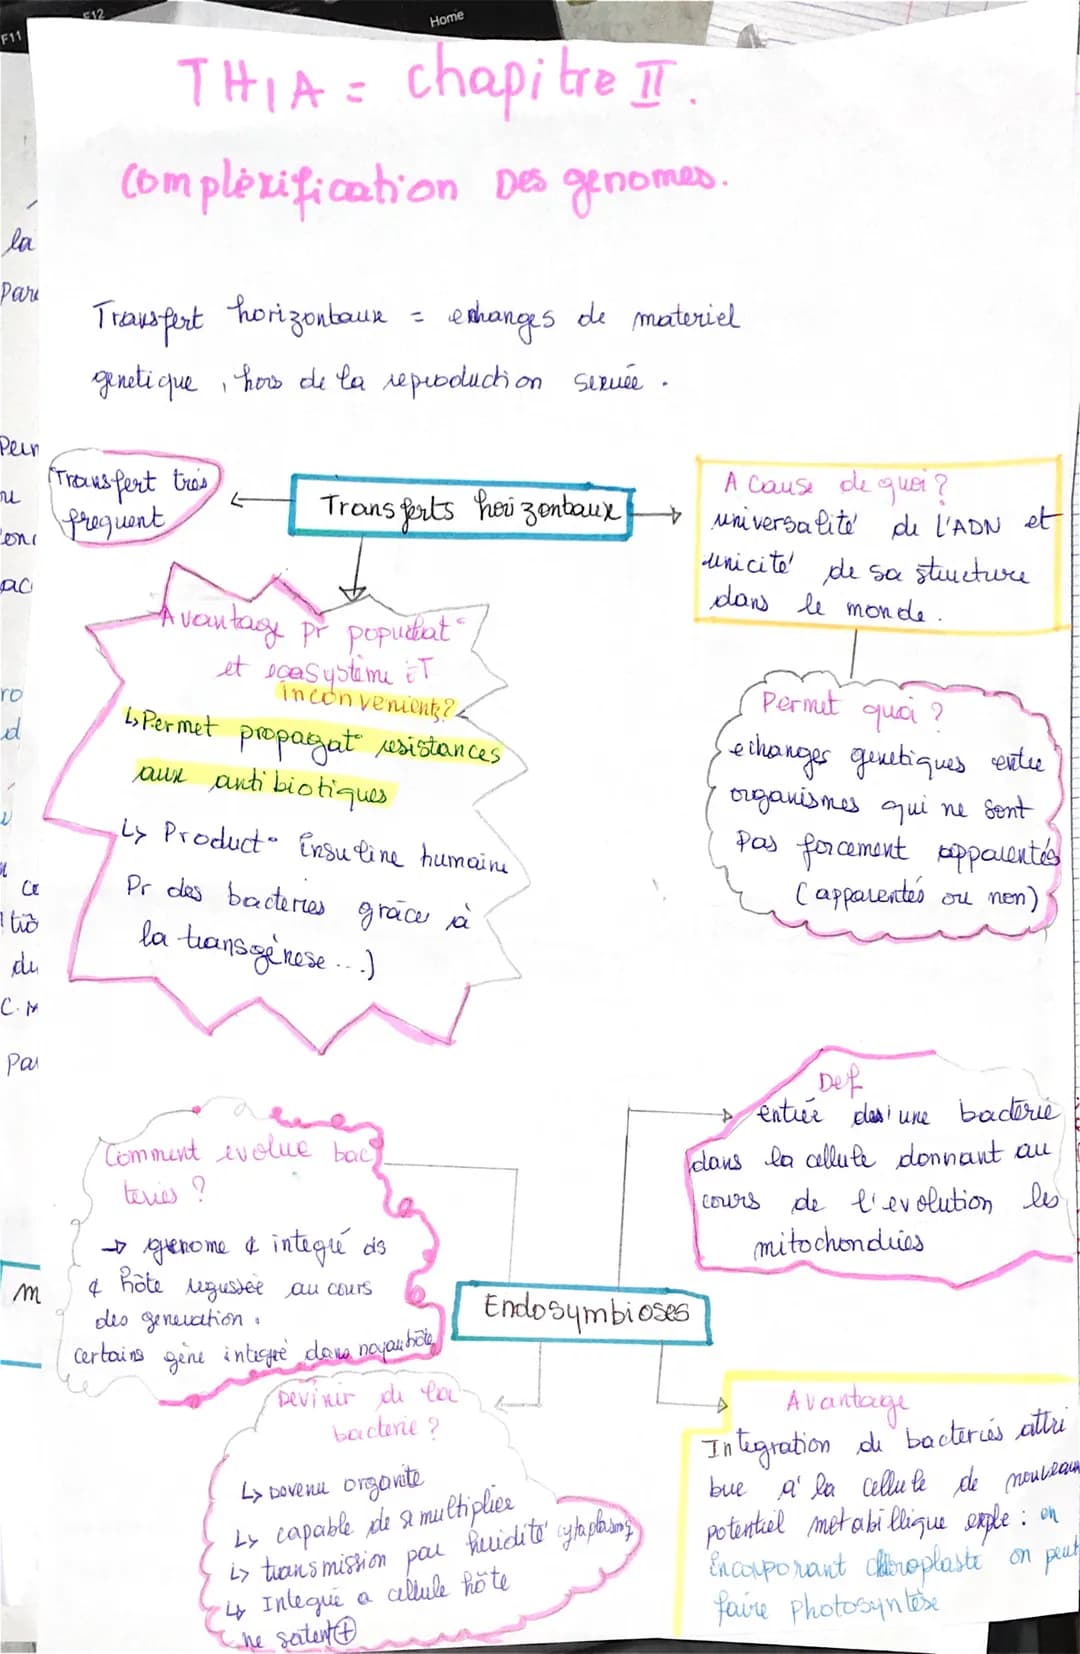 F11
F12
Home
TH1A = Chapitre II.
Compléxification Des genomes.
la
Par
Transfert horizontaux = echanges de materiel
genetique, hors de la reproduction sexuée.
Transfert très
frequent
Transferts horizontaux
A Cause de quoi?
universalité de l'ADN et
unicité de sa structure
dans le monde.
Avantag pr populat°
et ecosystème ET
inconvenients?
↳ Permet propagat° resistances
aux antibiotiques
↳ Product° Insuline humaine
Pr des bacteries grâce à
la transgénese...)
Permet quoi?
echanges genetiques entre
organismes qui ne sont
Pas forcement apparentés
(apparentés ou non)
ro
d
ce
du
C.M
Par
Def
entrée une bacterie
dans la cellule donnant au
cours de l'evolution les
mitochondries
Comment evolue bac
teries?
→ genome & integré ds
& hôte regussée au cours
des generation.
Certains gène integré dans noyau hôte
m
Endosymbioses
Devinir de la
bacterie?
↳ Devenu organite
↳ capable de se multiplier
↳ transmission par heridité cytoplasmq
↳ Integré a cellule hôte
ne
Avantage
Integration de bacteries attri
bue a' la cellule de nouveau
potentiel metabillique exple: en
incorporant chloroplaste on peut
faire Photosyntèse